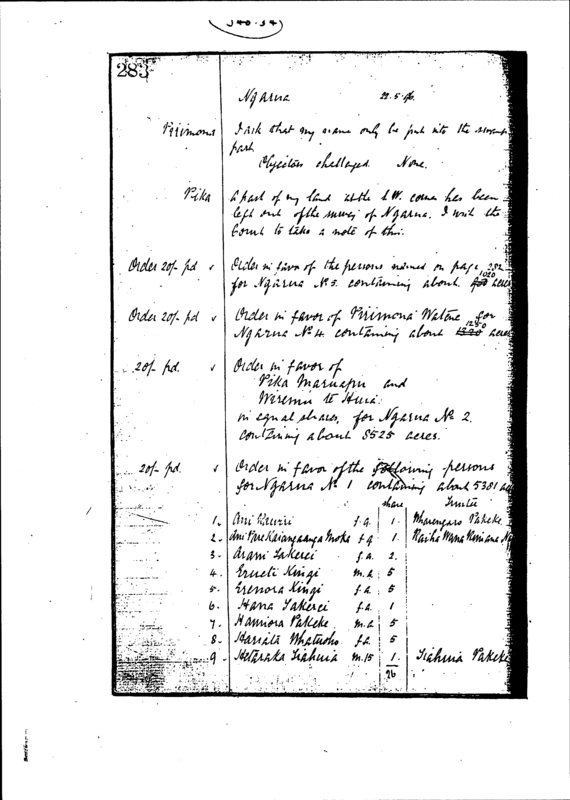 540.54
283
Ngarua 22.5.96.
Pirimona I ask that my name only be put into the
part
Objectors challenged None.
Pika a part of my land at the S.W. corner has been
left out of the survey of Ngarua. I wish the
Court to take a note of this.
Order 20/- pd v Order in favor of the persons named on page 282
1020
for Ngarua No 3. containing about acres
Order 20/- pd v Order in favor of Pirimona Watene for
1250
Ngarua No 4. containing about 1320 acres
20/- pd. v Order in favor of
Pika Maruapu and
Wiremu te Huia
in equal shares, for Ngarua No 2.
containing about 8525 acres.
20/- pd. v Order in favor of the following persons
for Ngarua No 1 containing about 5381
share Trustee
1. Ani f.a. 1. Wharengaro Pakeke.
2. Ani f.a 1.
3. Arani Takerei f.a. 2.
4. Erueti Kingi m.a 5
5. Erenora Kingi f.a. 5
6. Hana Takerei f.a 1
7. Hamiora Pakeke m.a 5
8. Hariata f.a. 5
9. Hetaraka Tiahuia m.15 1. Tiahuia Pakeke
26